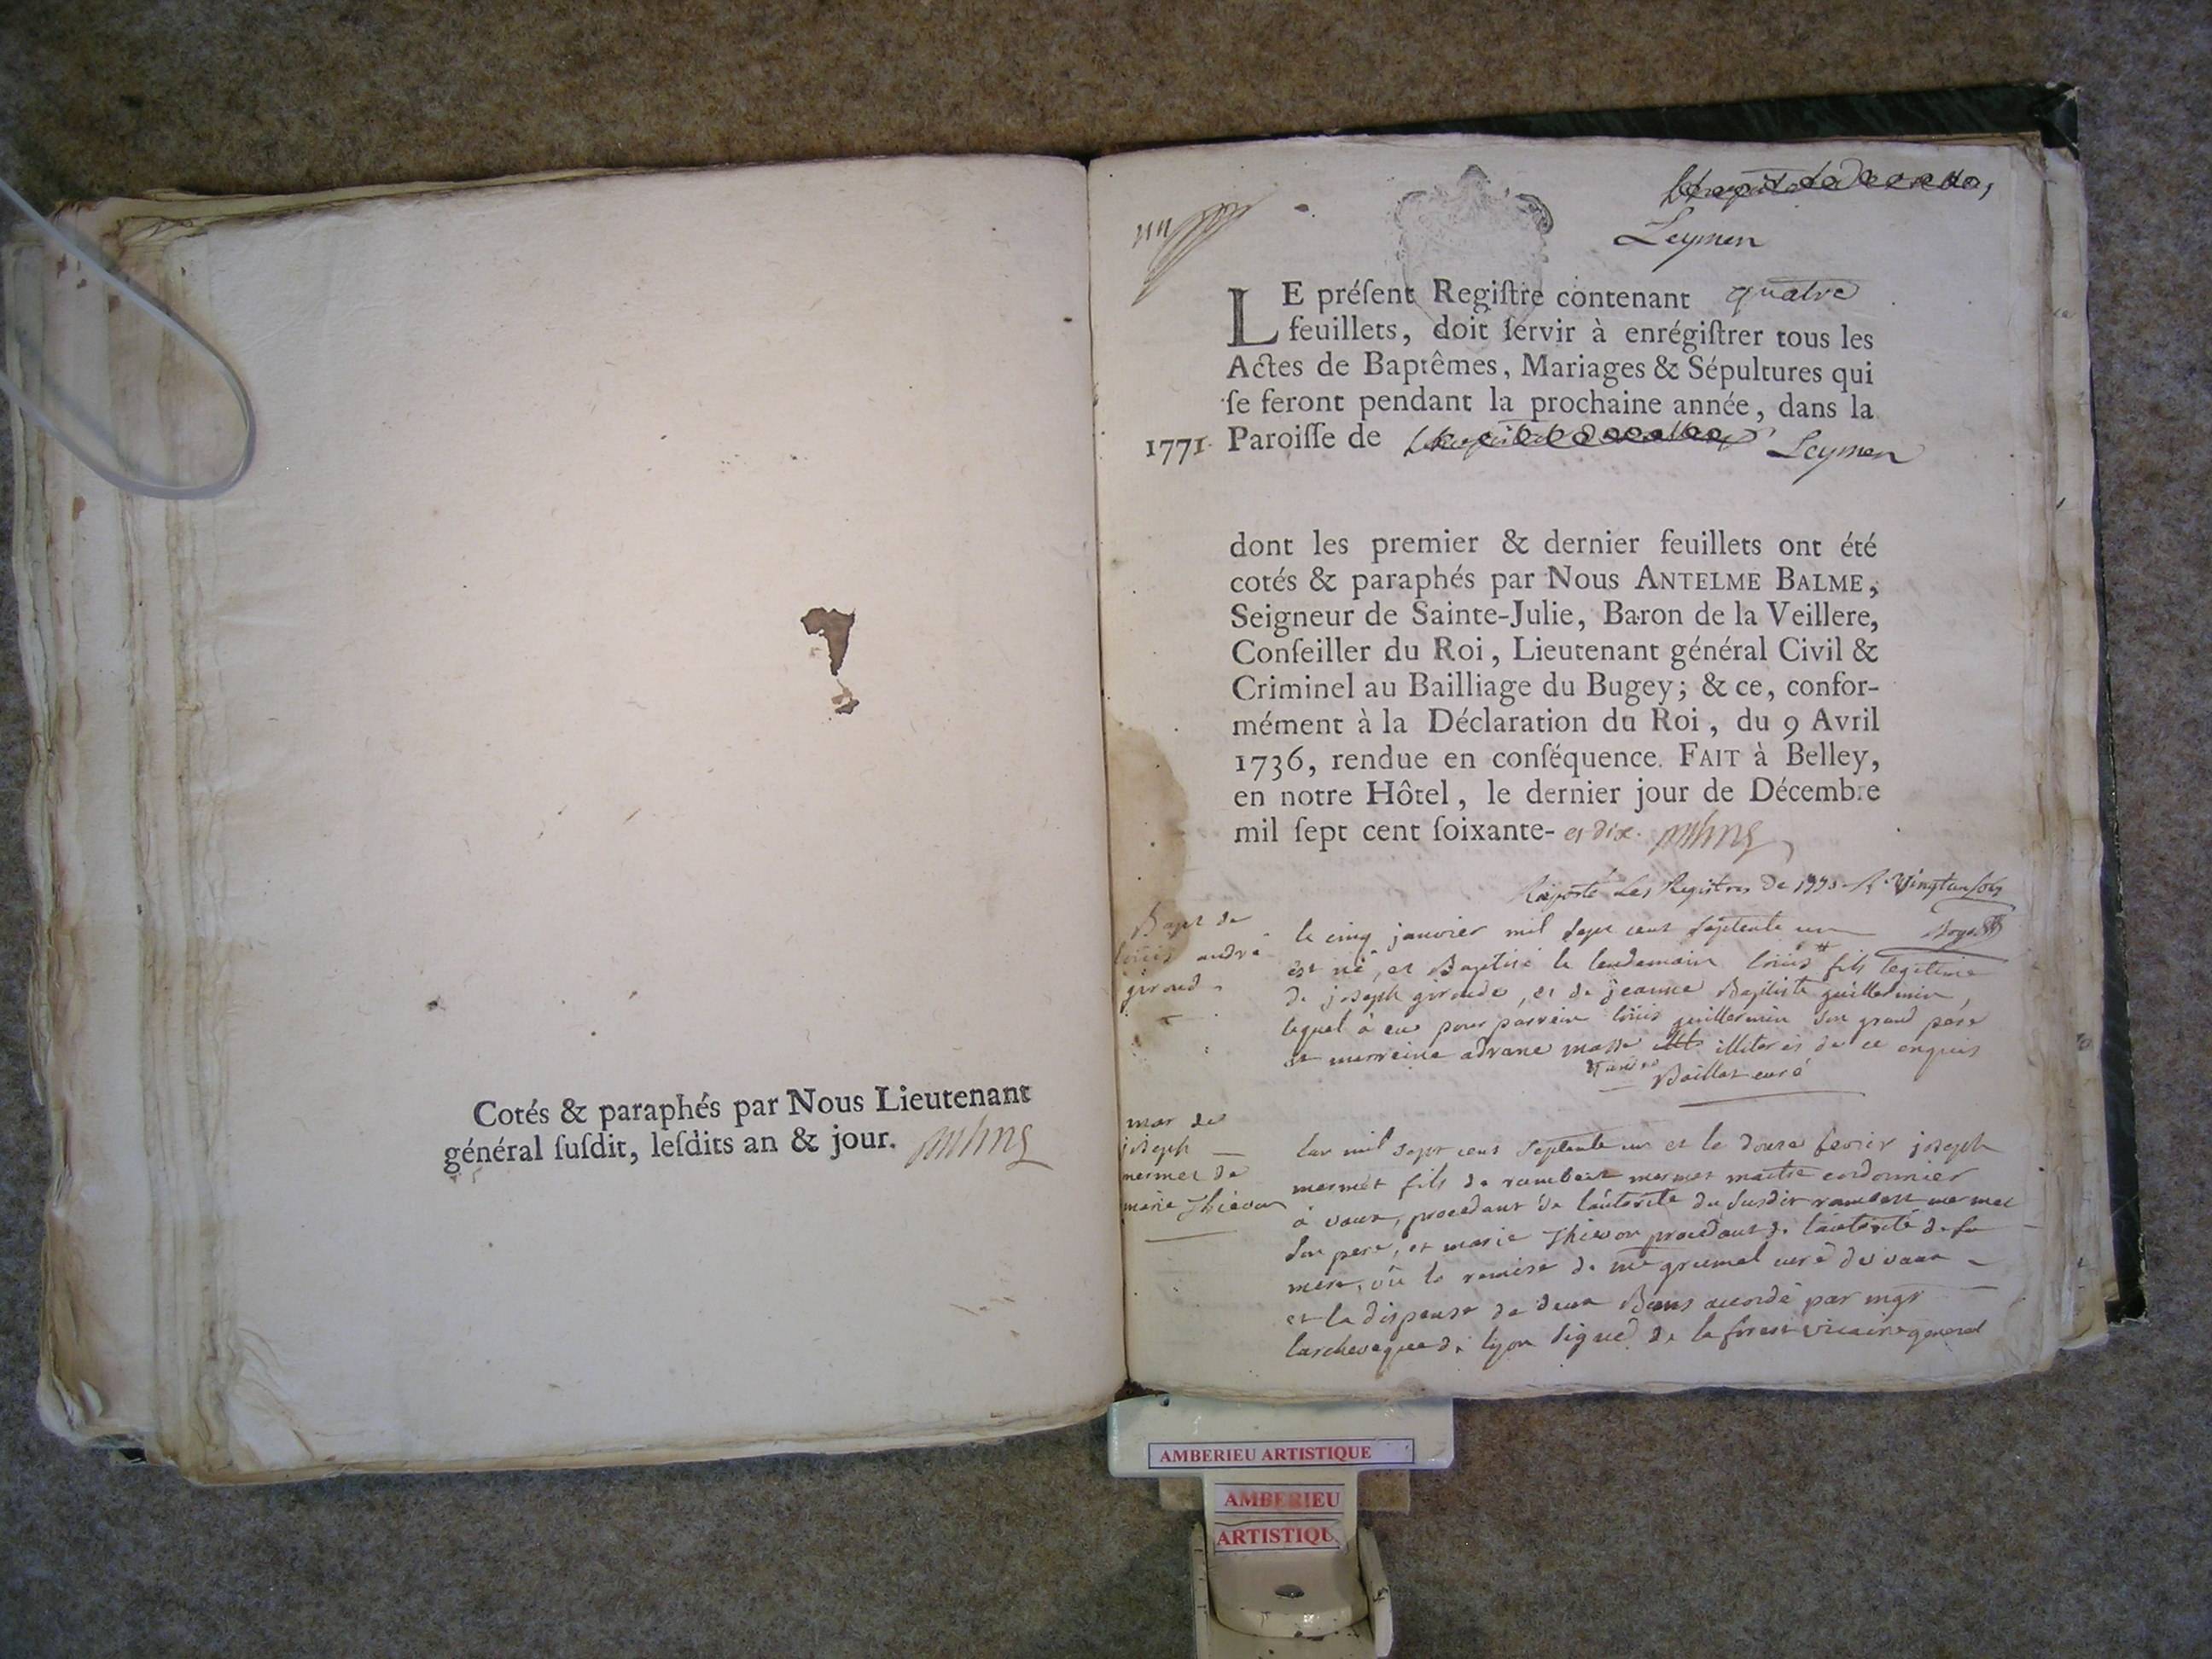 Cotés & paraphés par Nous Lieutenant
général ſuſdit, leſdits an & jour.
Leymen
LE préſent Regiſtre contenant quatre
feuillets, doit ſervir à enrégiſtrer tous les
Actes de Baptêmes, Mariages & Sépultures qui
ſe feront pendant la prochaine année, dans la
1771. Paroiſſe de Leymen
dont les premier & dernier feuillets ont été
cotés & paraphés par Nous ANTELME BALME,
Seigneur de Sainte-Julie, Baron de la Veillere,
Conſeiller du Roi, Lieutenant général Civil &
Criminel au Bailliage du Bugey; & ce, confor-
mément à la Déclaration du Roi, du 9 Avril
1736, rendue en conſéquence. FAIT à Belley,
en notre Hôtel, le dernier jour de Décembre
mil ſept cent ſoixante- et dix.
Raporté Les Registres De
Bapt de
louis andré
giroud
le cinq janvier mil sept cent septente un
est né, et Baptisé le lendemain louis # fils legitime
de joseph giroude, et de jeanne Baptiste guillermin,
lequel à eu pour parrein louis guillermin son grand pere
et marreine masse illiterés de ce enquis
# andré
Baillat curé
mar de
joseph
mermet de
marie Thievon
lan mil sept cent septente un et le douze fevrier joseph
mermet fils de rambert mermet maitre cordonnier
à vaux, procedant de lautorité du susdit rambert mermet
son pere, et marie Thievon procedant de lautorité de sa
mere, vû la remise de mre grumel curé de vaux
et la dispense de deux Bans accordé par mgr
larcheveque de lyon signé de la forest vicaire general
AMBERIEU ARTISTIQUE
AMBERIEU
ARTISTIQU